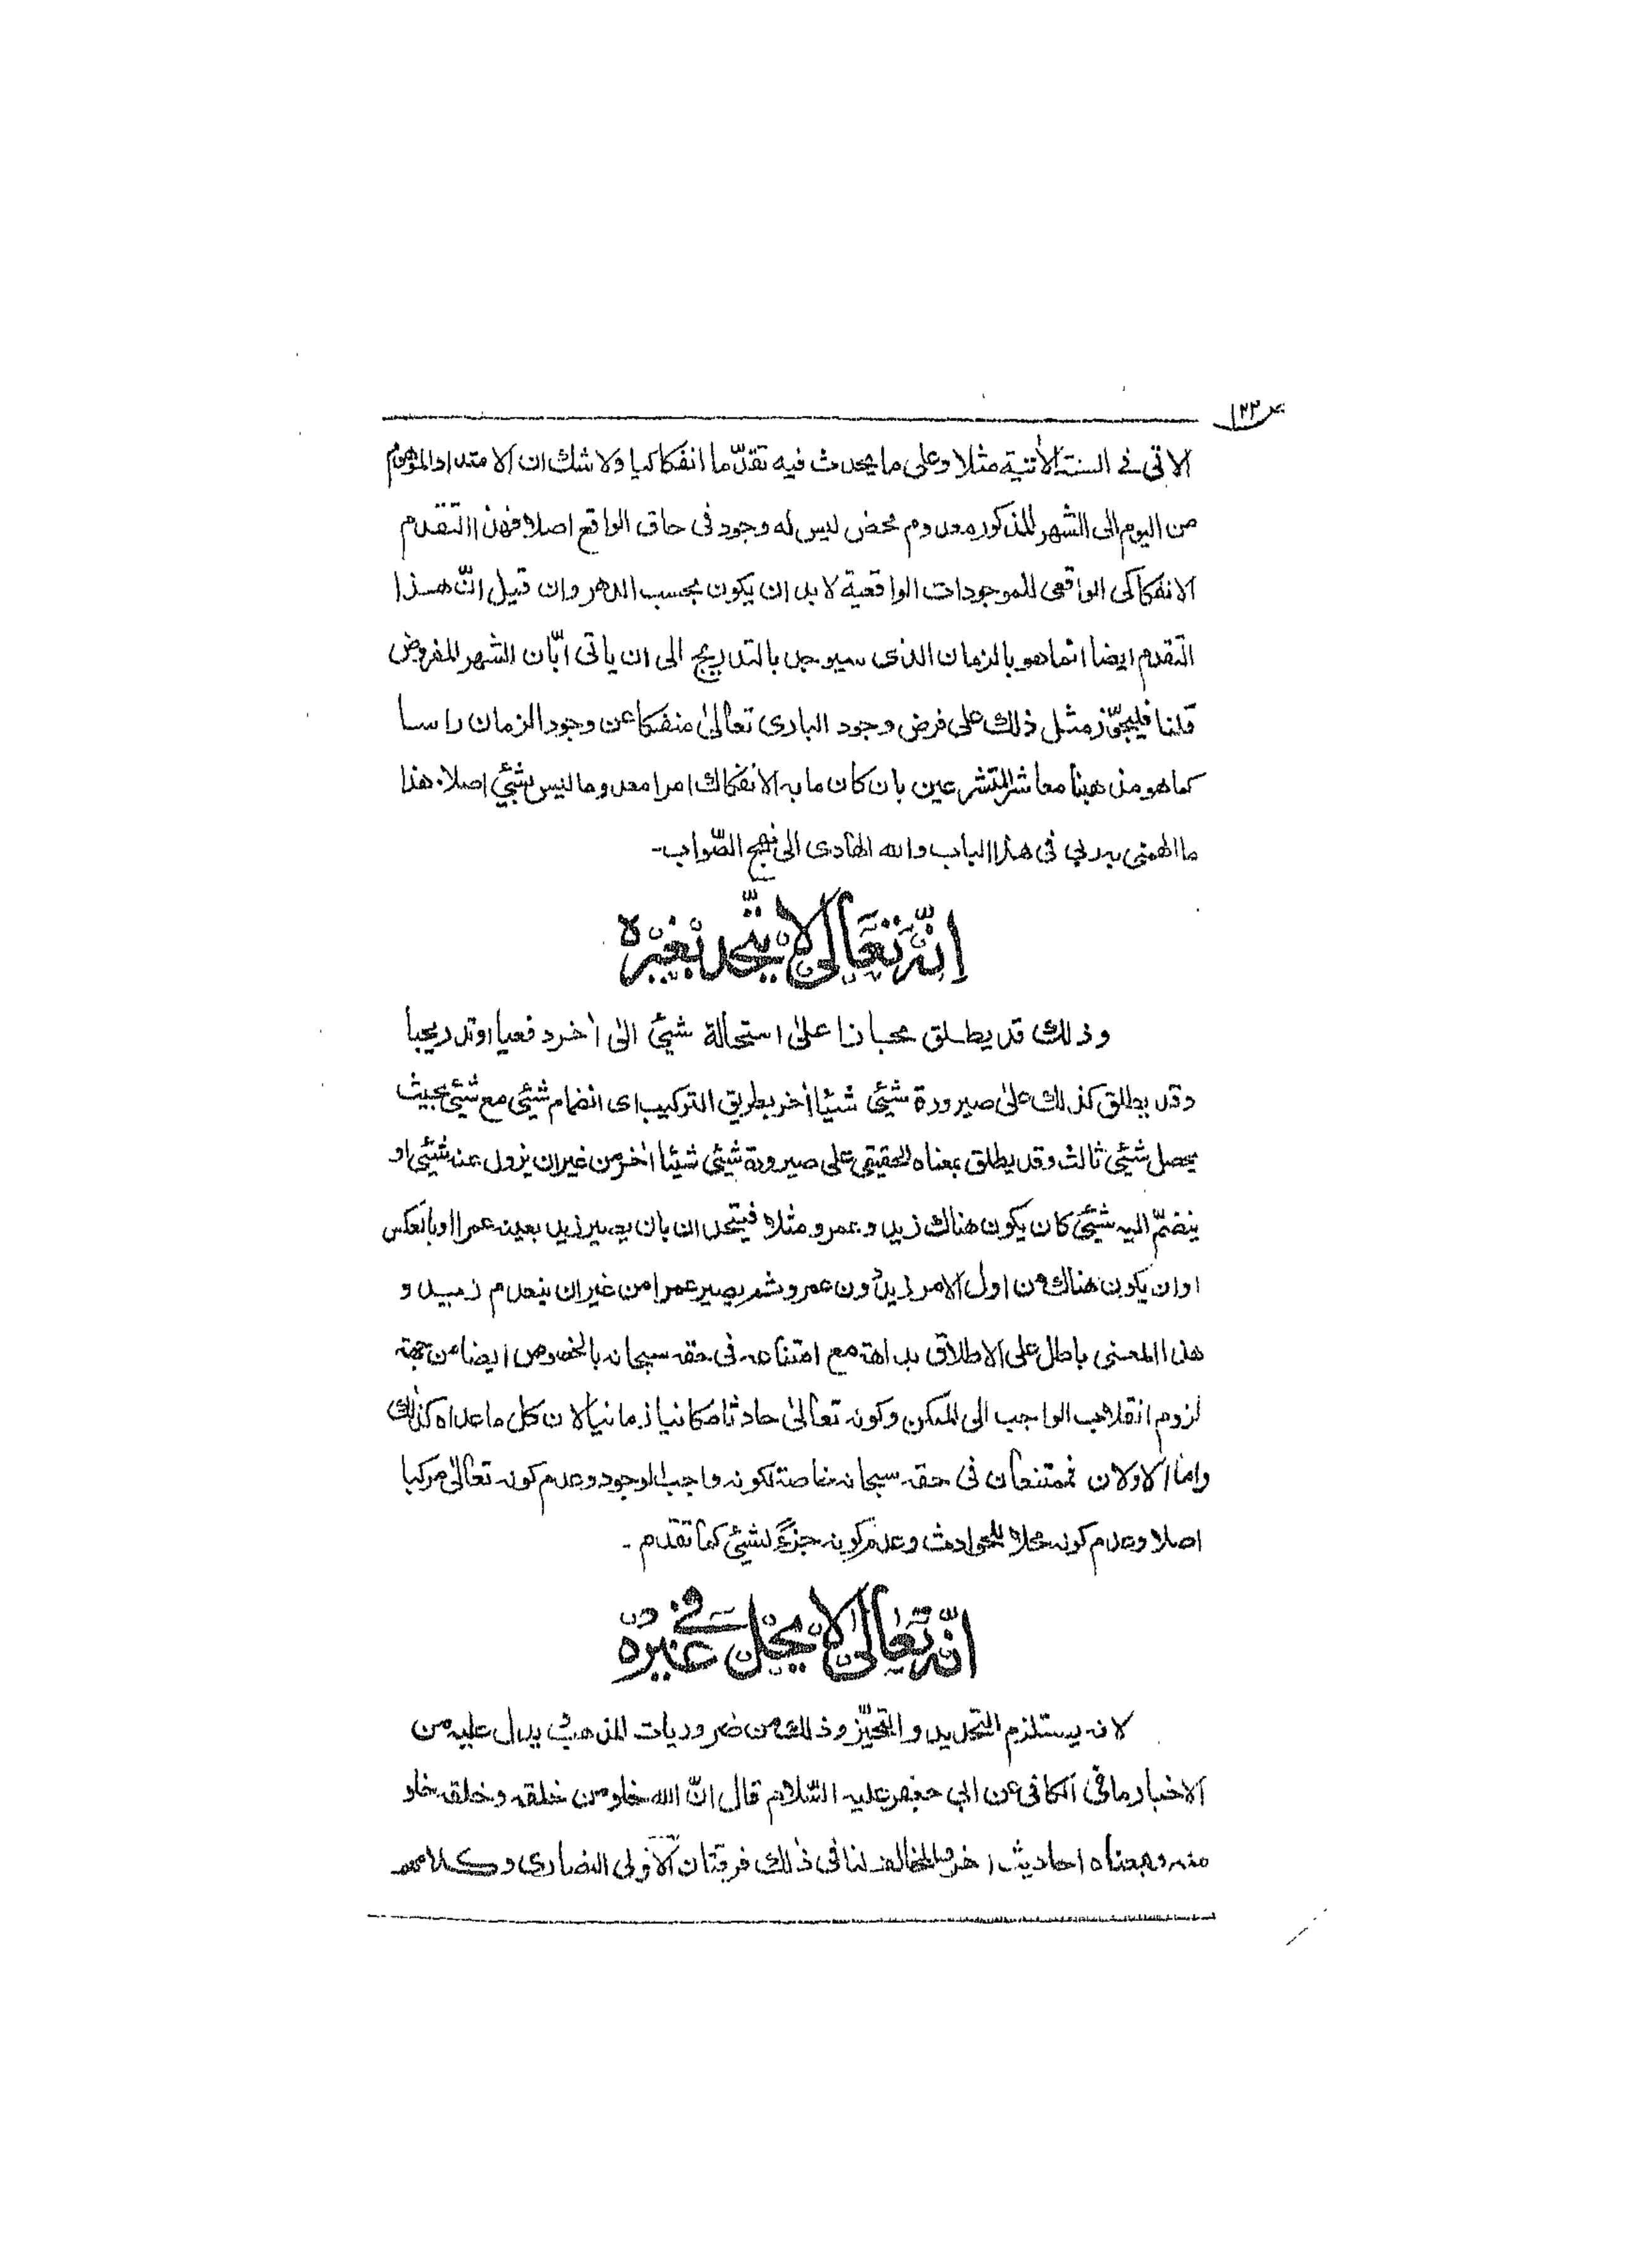 ١٢٣
الاتى فے السنة الاٰتية مثلا وعلى ما يحدث فيه تقدّما انفكاكيا ولا شك ان الامتداد الموهوم
من اليوم الى الشهر المذكور معدوم محض ليس له وجود فى حاق الواقع اصلا فهذا التقدم
الانفكاكى الواقعى للموجودات الواقعية لا بد ان يكون بحسب الدهر وان قيل انّ هذا
التقدم ايضا انما هو بالزمان الذى سيوجد بالتدريج الى ان ياتى ابّان الشهر المفروض
قلنا فليجوّز مثل ذلك على فرض وجود البارى تعالىٰ منفكا عن وجود الزمان راسا
كما هو مذهبنا معاشر المتشرعين بان كان ما به الانفكاك امرا معدوما ليس بشئ اصلا هذا
ما الهمنى به ربى فى هذا الباب والله الهادى الى نهج الصّواب۔
اِنَّهٗ تَعَالٰى لَا يَتَّحِدُ بِغَيْرِهٖ
وذلك قد يطلق مجازا علىٰ استحالة شيئ الىٰ اٰخر دفعيا او تدريجيا
وقد يطلق كذلك علىٰ صيرورة شيئ شيئا اٰخر بطريق التركيب اى انضمام شيئ مع شيئ بحيث
يحصل شيئ ثالث وقد يطلق بمعناه الحقيقي على صيرورة شيئ شيئا اٰخر من غير ان يزول عنه شيئ او
ينضمّ اليه شيئ كان يكون هناك زيد وعمرو مثلا فيتحدان بان يصير زيد بعينه عمرا او بالعكس
او ان يكون هناك من اول الامر زيد دون عمرو ثم يصير عمرا من غير ان ينعدم زيد و
هذا المعنى باطل على الاطلاق بداهة مع امتناعه فى حقه سبحانه بالخصوص ايضا من جهة
لزوم انقلاب الواجب الى الممكن وكونه تعالىٰ حادثا مكانيا زمانيا لان كل ما عداه كذلك
واما الاولان فممتنعان فى حقه سبحانه خاصة لكونه واجب الوجود وعدم كونه تعالىٰ مركبا
اصلا وعدم كونه محلا للحوادث وعدم كونه جزءً لشيئ كما تقدم ۔
اِنَّهٗ تَعَالٰى لَا يَحُلُّ فِے غَيْرِهٖ
لانه يستلزم التحديد والتحيّز وذلك من ضروريات المذهب يدل عليه من
الاخبار ما فى الكافى عن ابي جعفر عليه السّلام قال انّ الله خلو من خلقه وخلقه خلو
منه وبمعناه احاديث اخر والمخالف لنا فى ذلك فرقتان الاولى النصارى وكلامهم